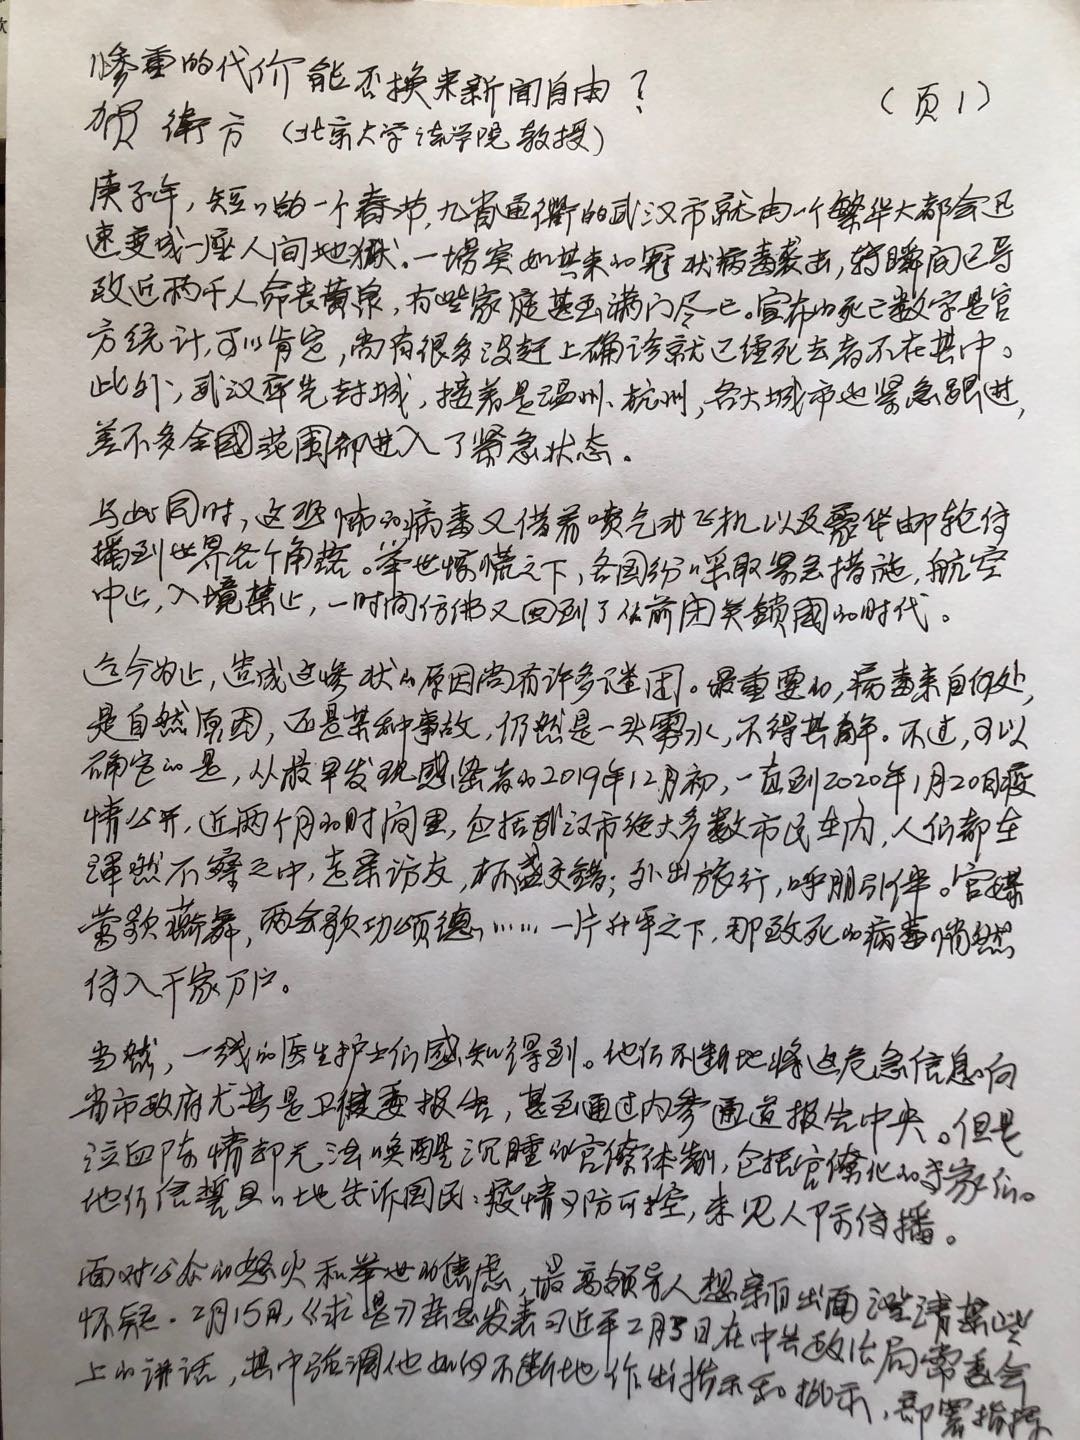 惨重的代价能否换来新闻自由？
（页1）
贺衛方（北京大学法学院教授）
庚子年，短短的一个春节，九省通衢的武汉市就由一个繁华大都会迅
速变成一座人间地狱。一場突如其来的冠状病毒袭击，转瞬间已导
致近两千人命丧黄泉，有些家庭甚至满门尽亡。宣布的死亡数字是官
方统计，可以肯定，尚有很多没赶上确诊就已經死去者不在其中。
此外，武汉率先封城，接着是温州、杭州，各大城市也紧急跟进，
差不多全國范围都进入了紧急状态。
与此同时，这恐怖的病毒又借着喷气式飞机以及豪华邮轮传
播到世界各个角落。举世惊慌之下，各国纷纷采取紧急措施，航空
中止，入境禁止，一时间仿佛又回到了从前闭关鎖國的时代。
迄今为止，造成这惨状的原因尚有许多谜团。最重要的，病毒来自何处，
是自然原因，还是某种事故，仍然是一头雾水，不得其解。不过，可以
确定的是，从最早发现感染者的2019年12月初，一直到2020年1月20日疫
情公开，近两个月的时间里，包括武汉市绝大多数市民在内，人们都在
浑然不察之中，走亲访友，杯盏交错；外出旅行，呼朋引伴。官媒
莺歌燕舞，两会歌功颂德……一片升平之下，那致死的病毒悄然
传入千家万户。
当然，一线的医生护士们感知得到。他们不断地将这危急信息向
当市政府尤其是卫健委报告，甚至通过内参通道报告中央。但是
泣血陈情却无法唤醒沉睡的官僚体制，包括官僚化的专家们。
他们信誓旦旦地告诉国民：疫情可防可控，未见人际传播。
面对公众的怒火和举世的焦虑，最高领导人想亲自出面澄清某些
怀疑。2月15日，《求是》杂志发表习近平2月3日在中共政治局常委会
上的讲话，其中强调他如何不断地作出指示和批示，部署指挥